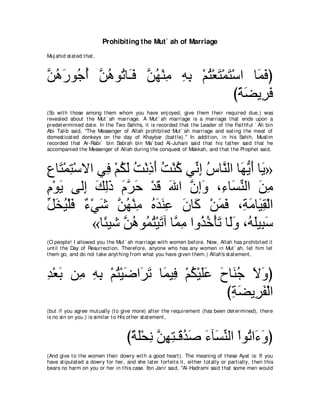 Prohibiting the Mut` ah of Marriage
Mujahid stated that,
﴿فَمَا اسْتَمْتَعْتُمْ بِهِ مِنْهُنَّ فَـَاتُوهُنَّ أُجُورَهُنَّ
فَرِيضَةً﴾
(So with those among them whom you have enjoyed, give them their required due,) was
revealed about the Mut` ah marriage. A Mut` ah marriage is a marriage that ends upon a
predetermined date. In the Two Sahihs, it is recorded that the Leader of the Faithful ` Ali bin
Abi Talib said, "The Messenger of Allah prohibited Mut` ah marriage and eating the meat of
domesticated donkeys on the day of Khaybar (battle)." In addition, in his Sahih, Muslim
recorded that Ar-Rabi` bin Sabrah bin Ma` bad Al-Juhani said that his father said that he
accompanied the Messenger of Allah during the conquest of Makkah, and that the Prophet said,
«يَا أَيُّهَا النَّاسُ إِنِّي كُنْتُ أَذِنْتُ لَكُمْ فِي الِاسْتِمْتَاعِ
مِنَ النِّسَاءِ، وَإِنَّ اللهَ قَدْ حَرَّمَ ذَلِكَ إِلَى يَوْمِ
الْقِيَامَةِ، فَمَنْ كَانَ عِنْدَهُ مِنْهُنَّ شَيْءٌ فَلْيُخَلِّ
سَبِيلَهُ، وَلَا تَأْخُذُوا مِمَّا آتَيْتُمُوهُنَّ شَيْئًا»
(O people! I allowed you the Mut` ah marriage with women before. Now, Allah has prohibited it
until the Day of Resurrection. Therefore, anyone who has any women in Mut` ah, let him let
them go, and do not take anything from what you have given them.) Allah's statement,
﴿وَلاَ جُنَاحَ عَلَيْكُمْ فِيمَا تَرَاضَيْتُمْ بِهِ مِن بَعْدِ
الْفَرِيضَةِ﴾
(but if you agree mutually (to give more) after the requirement (has been determined), there
is no sin on you.) is similar to His other statement,
﴿وَءَاتُواْ النِّسَآءَ صَدُقَـتِهِنَّ نِحْلَةً﴾
(And give to the women their dowry with a good heart). The meaning of these Ayat is: If you
have stipulated a dowry for her, and she later forfeits it, either totally or partially, then this
bears no harm on you or her in this case. Ibn Jarir said, "Al-Hadrami said that some men would